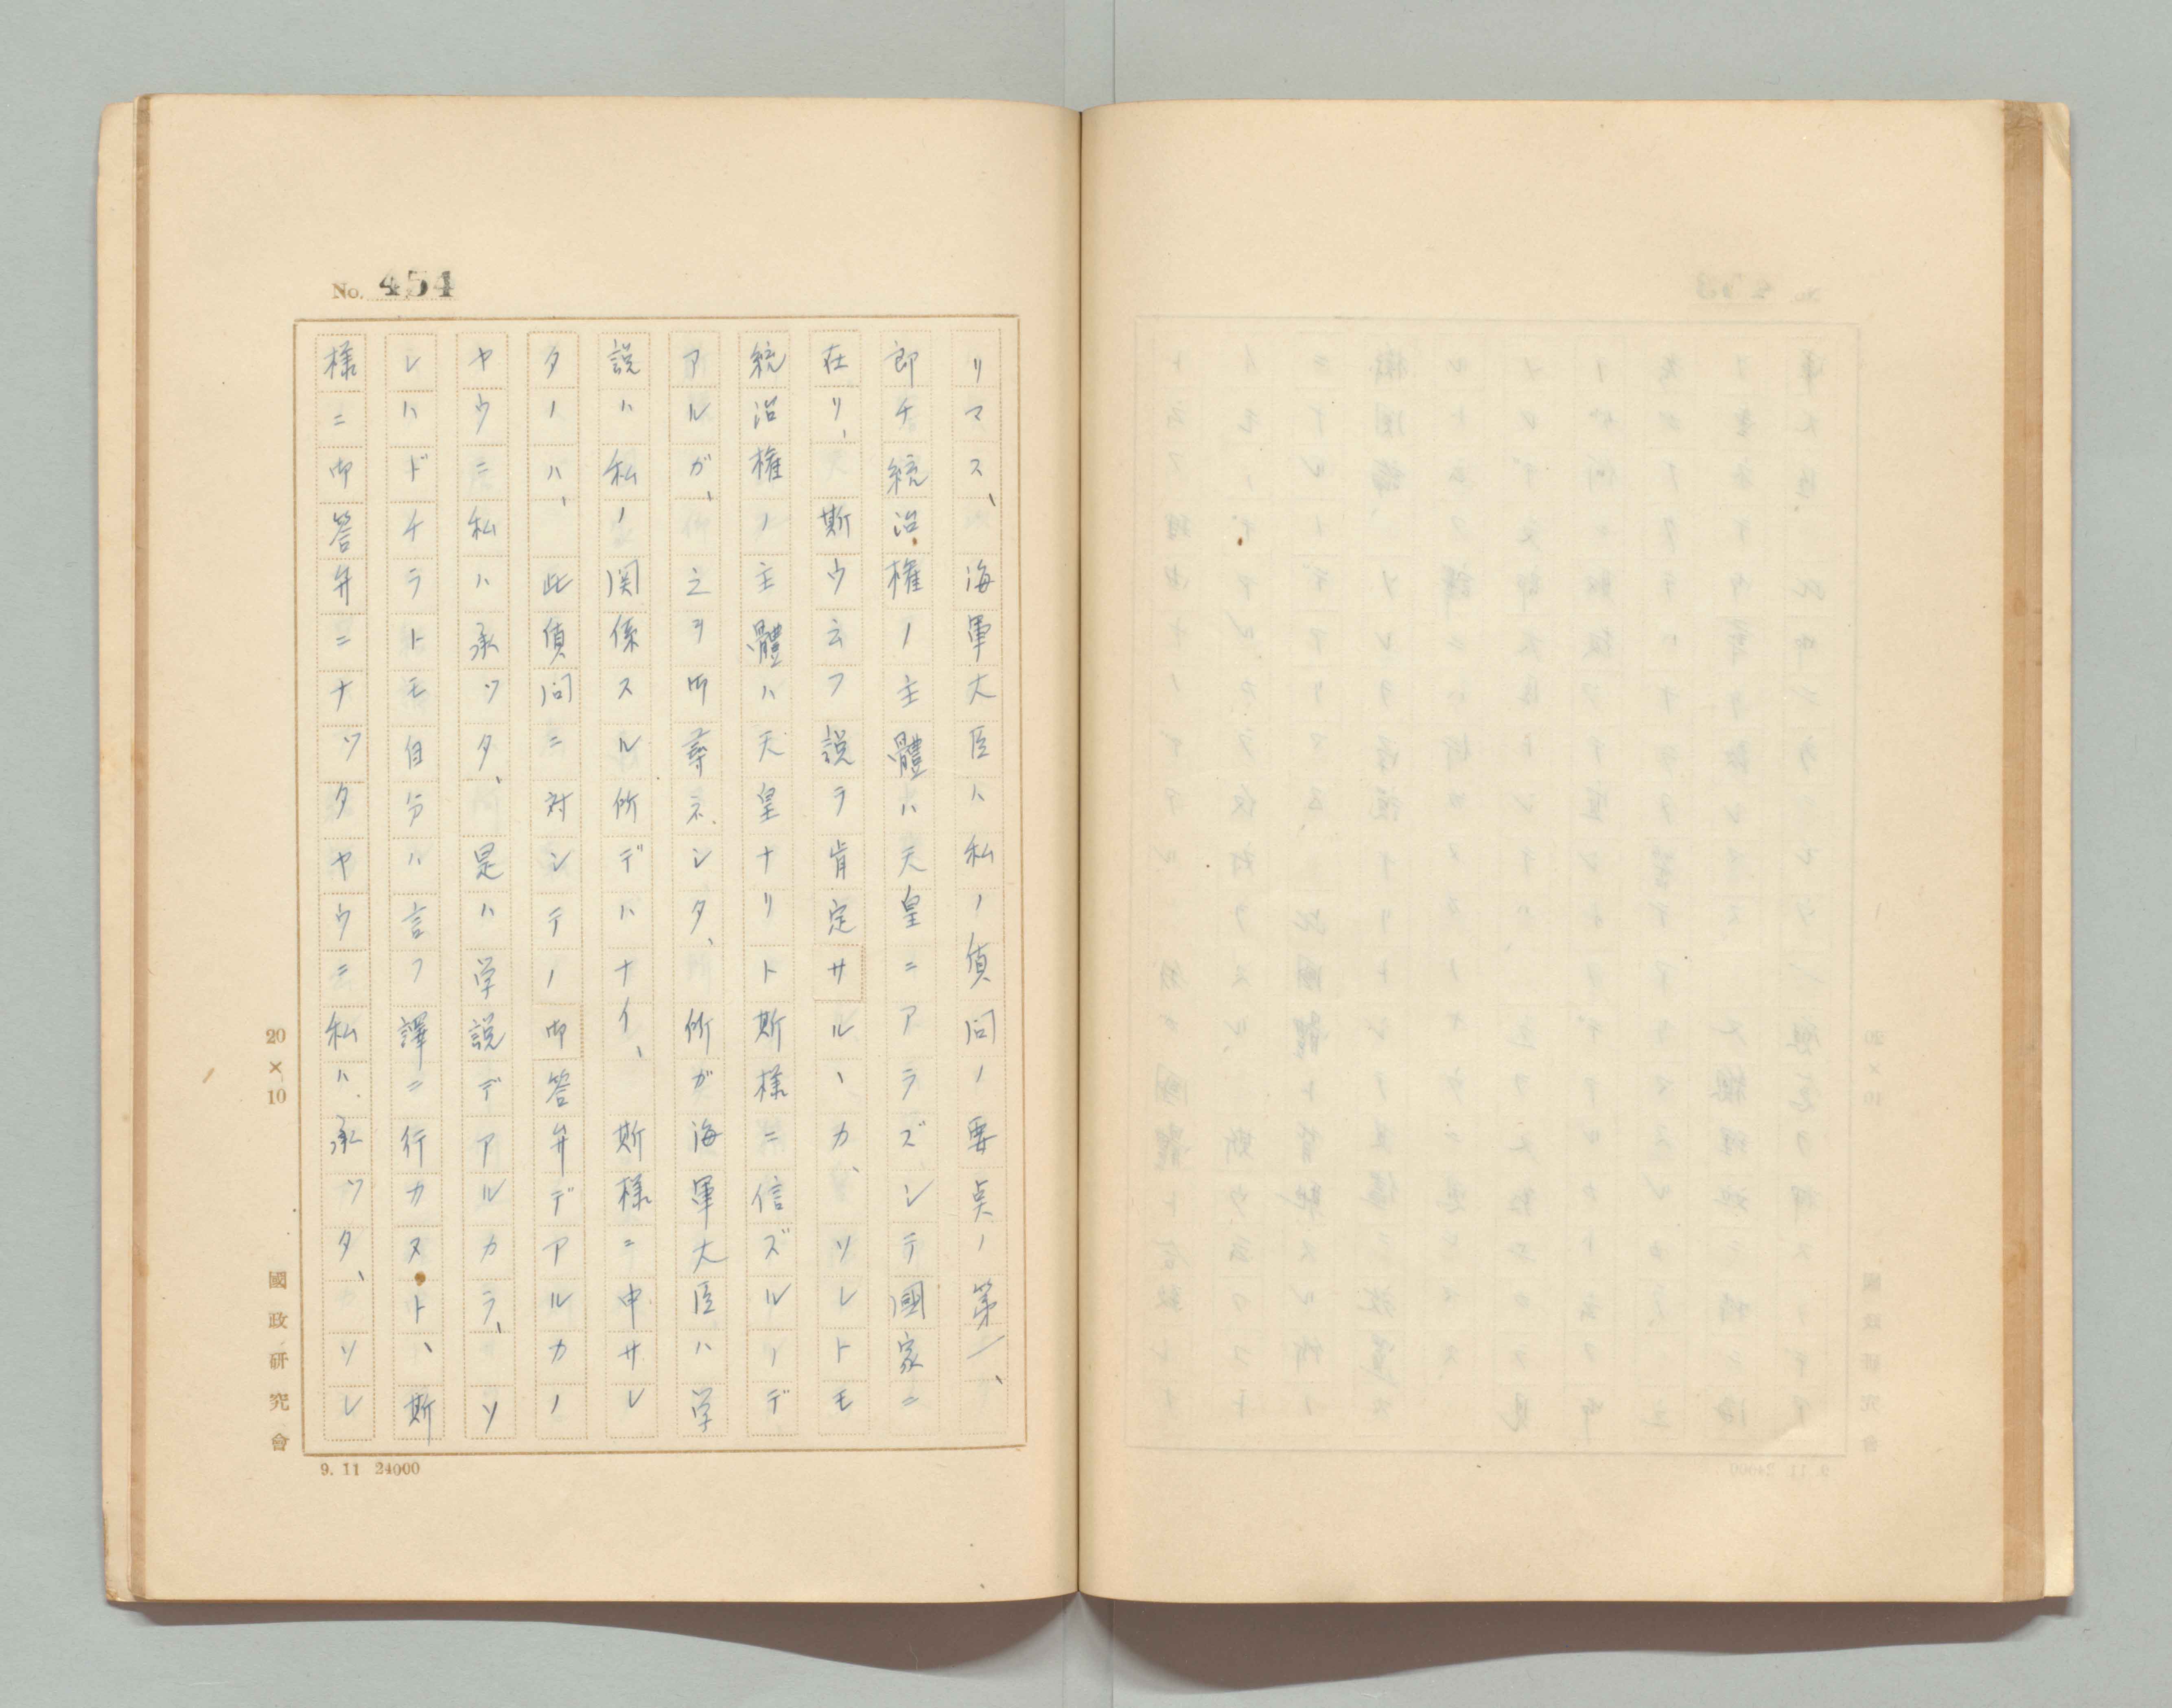 No. 454
リマス、海軍大臣ハ私ノ質問ノ要点ノ第一、
即チ統治権ノ主體ハ天皇ニアラズシテ國家ニ
在リ、斯ウ云フ説ヲ肯定サルヽカ、ソレトモ
統治権ノ主體ハ天皇ナリト斯様ニ信ズルノデ
アルガ、之ヲ御尋ネシタ、所ガ海軍大臣ハ学
説ハ私ノ関係スル所デハナイ、斯様ニ申サレ
タノハ、此質問ニ対シテノ御答弁デアルカノ
ヤウニ私ハ承ツタ、是ハ学説デアルカラ、ソ
レハドチラトモ自分ハ言フ譯ニ行カヌト、斯
様ニ御答弁ニナツタヤウニ私ハ承ツタ、ソレ
20×10
國政研究會
9. 11 24000